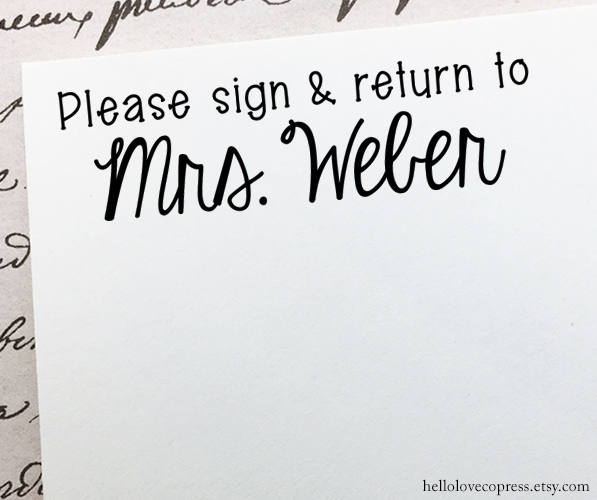 Please sign & return to
Mrs. Weber
hellolovecopress.etsy.com